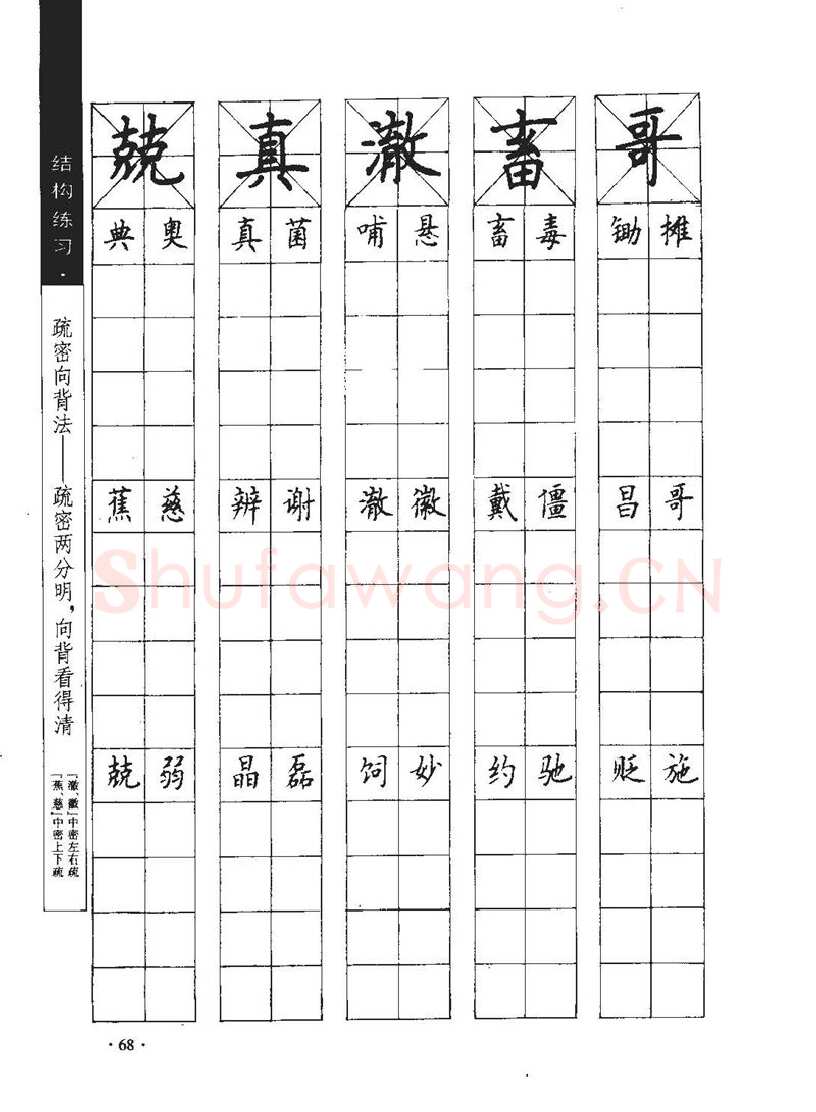 结构练习·
疏密向背法——疏密两分明，向背看得清
「澈、徽」中密左右疏
「蕉、慈」中密上下疏
兢 真 澈 畜 哥
典 奥 真 菌 哺 悬 畜 毒 锄 摊
蕉 慈 辨 谢 澈 徽 戴 僵 昌 哥
兢 弱 晶 磊 饲 妙 约 驰 贬 施
Shufawang.CN
·68·